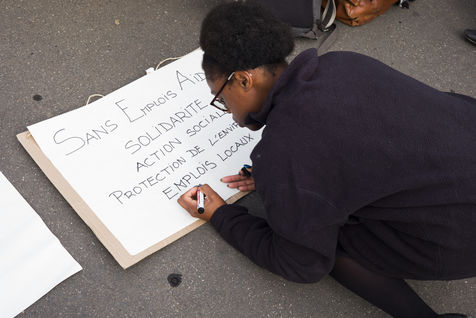 SANS EMPLOIS
SOLIDARITE
ACTION SOCIALE
PROTECTION DE L'
EMPLOIS LOCAUX